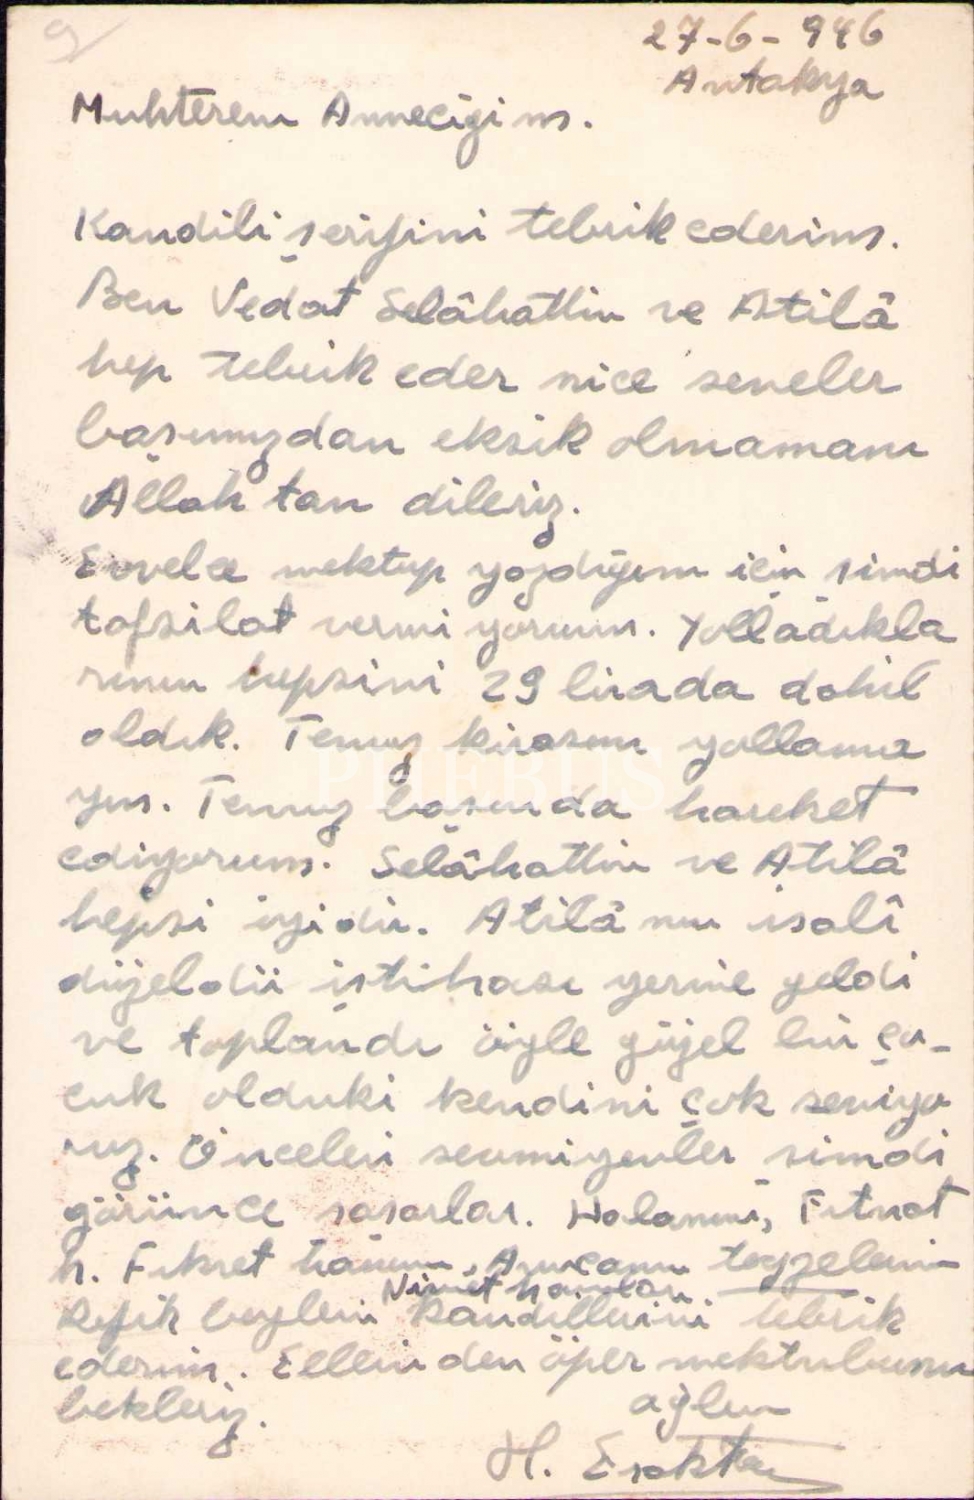 27-6-946
Antakya
Muhterem Anneciğim.
Kandili şerifini tebrik ederim.
Ben Vedat Selâhattin ve Atilâ
hep tebrik eder nice seneler
başımızdan eksik olmamanı
Allah tan dileriz.
Evvelce mektup yazdığım için şimdi
tafsilat vermi yorum. Yolladıkla
rının hepsini 29 lirada dahil
aldık. Temuz kirasını yollama
yın. Temuz başında hareket
ediyorum. Selâhattin ve Atilâ
hepsi iyi dir. Atilâ nın isalî
düzeldi iştihası yerine geldi
ve toplandı öyle güzel bir ço-
cuk olduki kendini çok seviyo
ruz. Önceleri sevmiyenler şimdi
görünce şaşarlar. Halamın, Fitnat
h. Fikret hanım, Amcamın teyzelerin
Nimet hanım
Refik beylerin Kandillerini tebrik
ederim. Ellerinden öper mektubunu
bekleriz.
oğlun
H.
PHEBUS